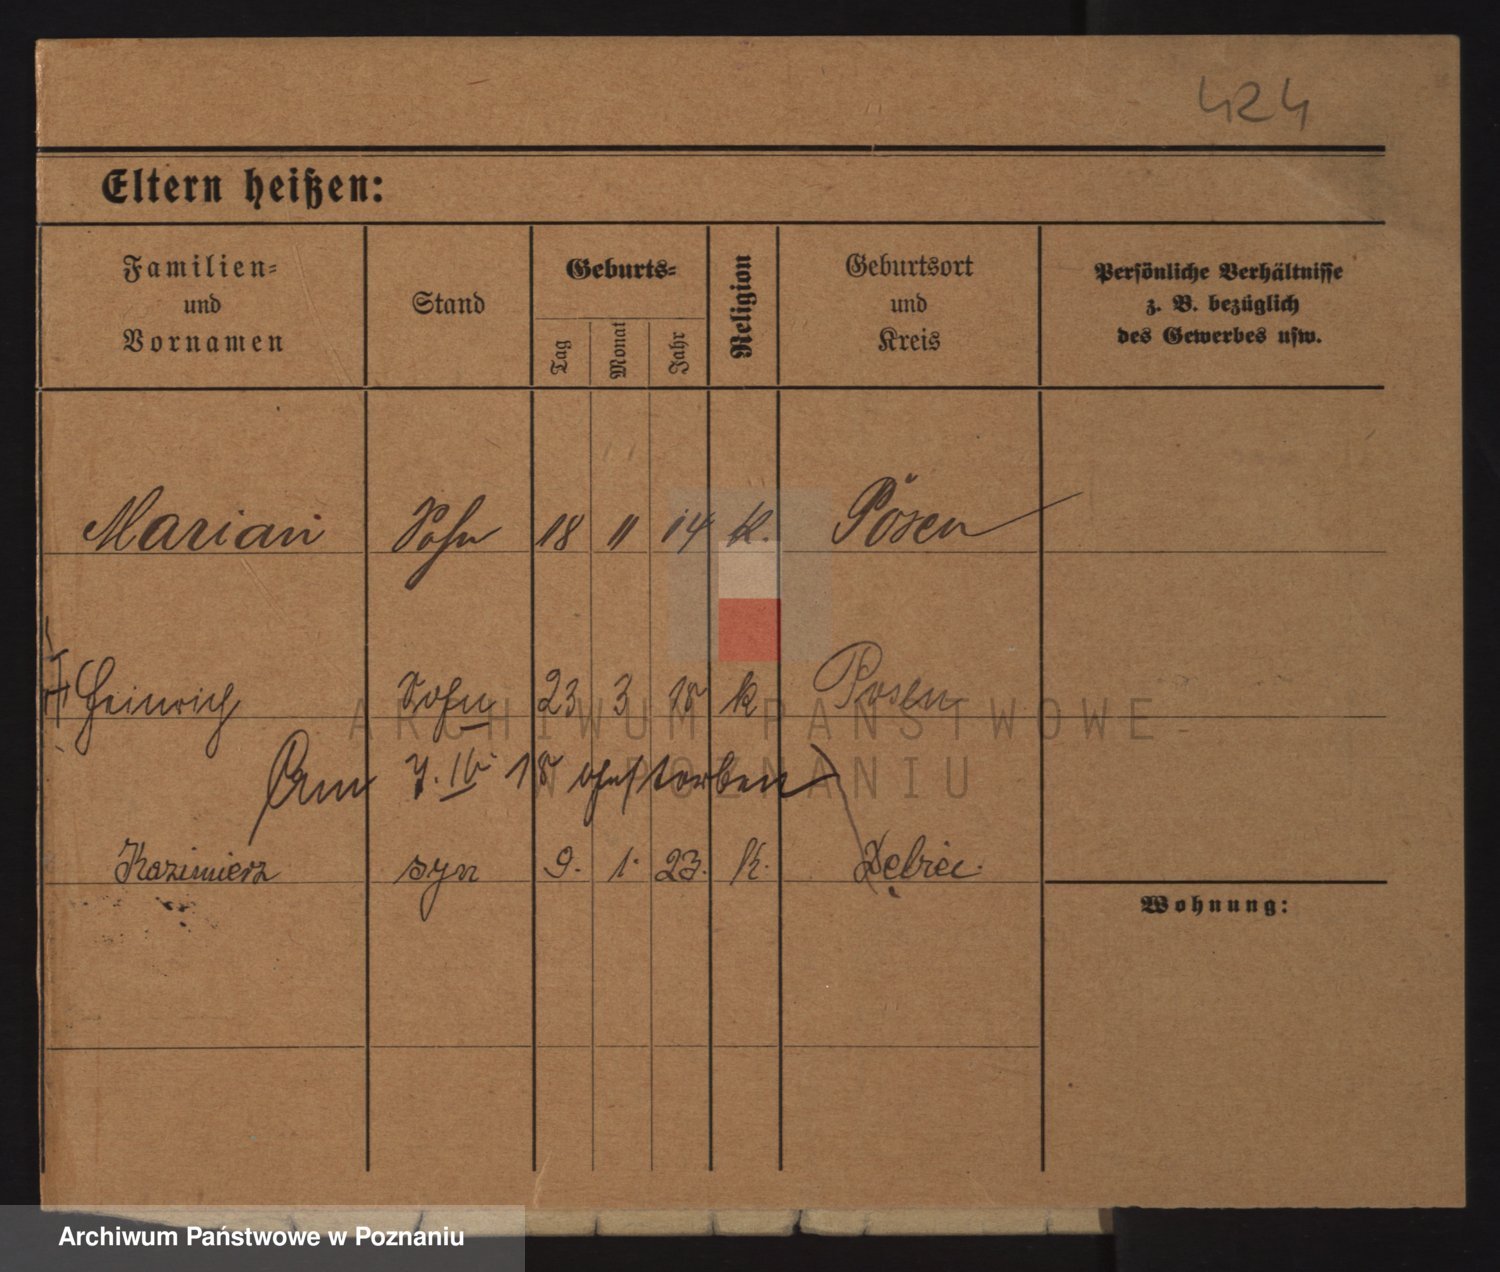 424
Eltern heißen:
Familien-
und
Vornamen
Stand
Geburts-
Tag
Monat
Jahr
Religion
Geburtsort
und
Kreis
Persönliche Verhältnisse
z. B. bezüglich
des Gewerbes usw.
Marian Sohn 18 11 14 k. Posen
Heinrich Sohn 23 3 18 k Posen
Am 7. IV 18
Kazimierz syn 9. 1. 23. k. Dębiec.
Wohnung:
ARCHIWUM PAŃSTWOWE
W POZNANIU
Archiwum Państwowe w Poznaniu